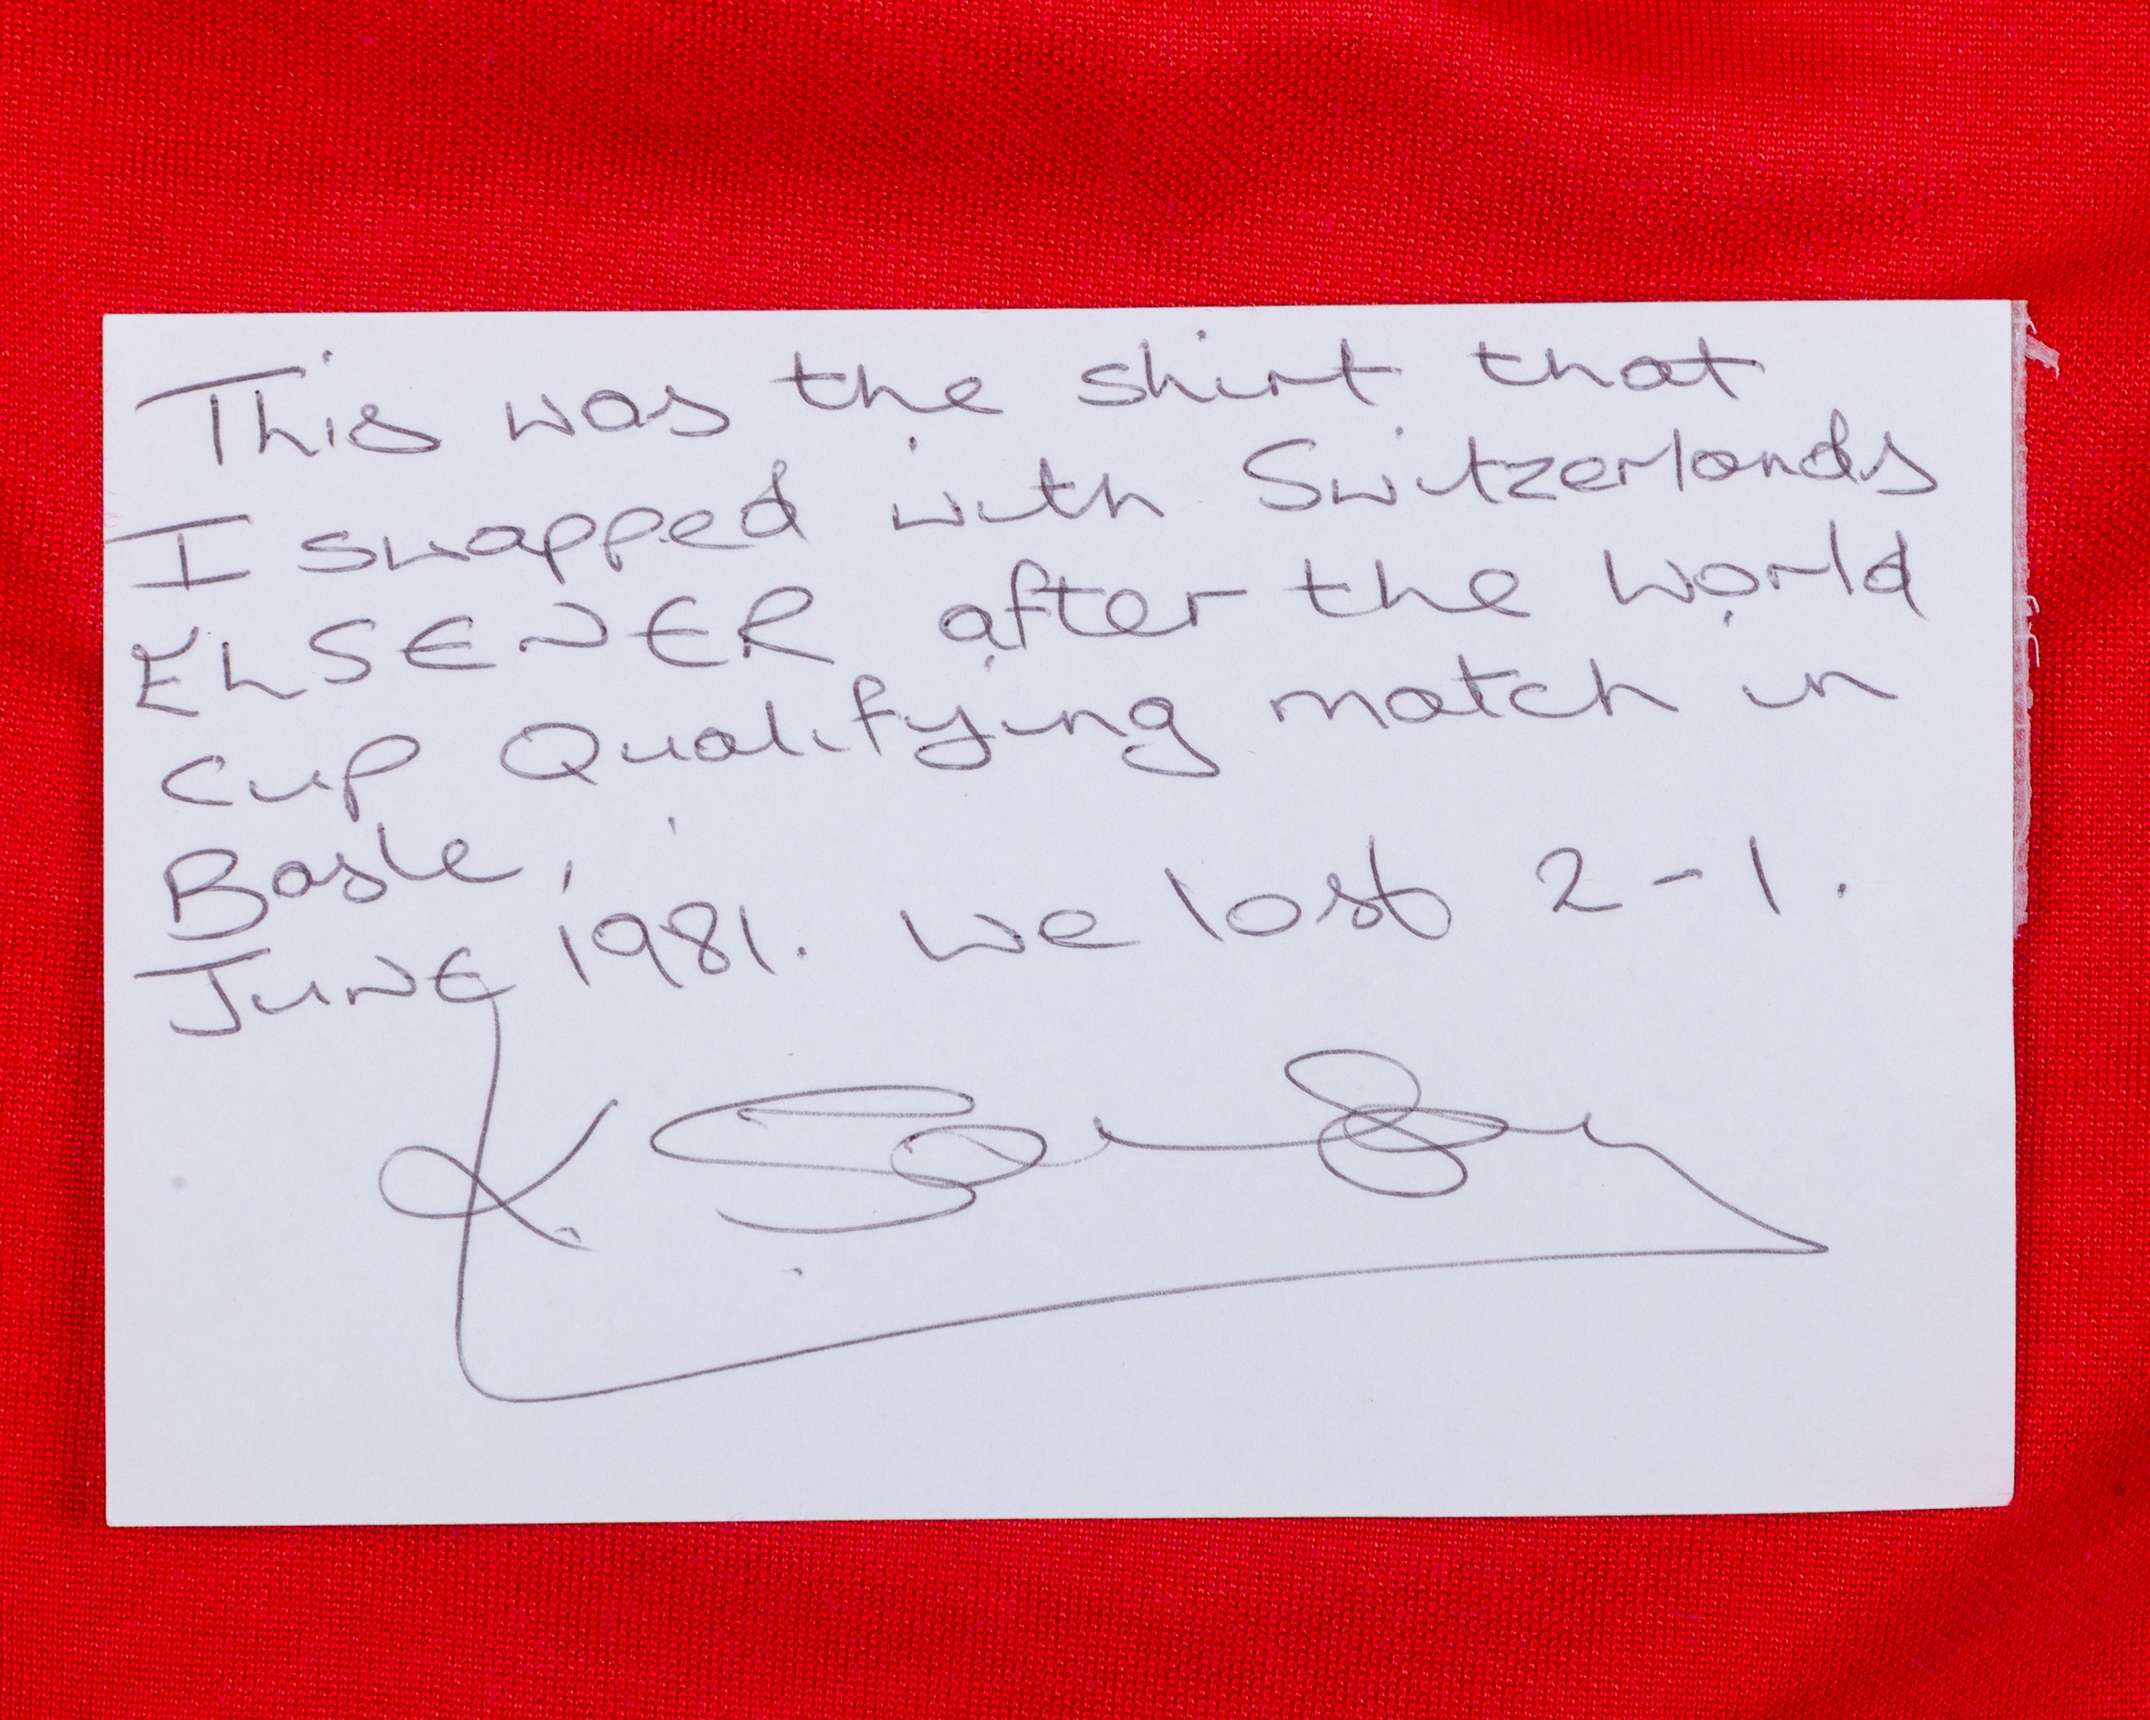 This was the shirt that
I swapped with Switzerlands
ELSENER after the World
Cup Qualifying match in
Basle,
JUNE 1981. We lost 2-1.
K. Sansom